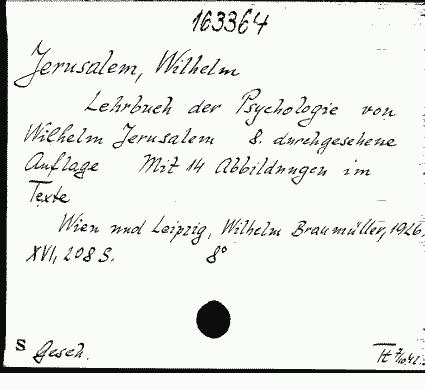 163364
Jerusalem, Wilhelm
Lehrbuch der Psychologie von
Wilhelm Jerusalem 8. durchgesehene
Auflage Mit 14 Abbildungen im
Texte
Wien und Leipzig, Wilhelm Braumüller, 1926.
XVI, 208 S. 8°
S Gesch.